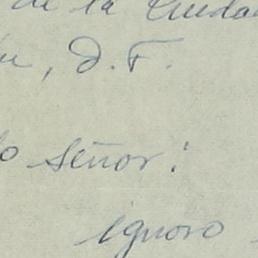 de la Ciudad
, D.F.
o Señor:
ignoro